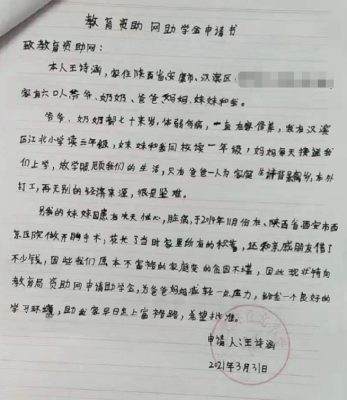 教育资助网助学金申请书
致教育资助网:
本人王诗涵,家住陕西省安康市、汉滨区
家有六口人爷爷、奶奶、爸爸妈妈、妹妹和我。
爷爷、奶奶都七十来岁,体弱多病,一直治病,我在汉滨
区江北小学读三年级,妹妹和我同校读一年级,妈妈每天接送我
们上学,放学照顾我们的生活,只有爸爸一人为家庭在外
打工,再无别的经济来源,很是艰难。
另我的妹妹因患有先天性心脏病,于2019年11月份在陕西省西安市西
京医院做开胸手术,花光了当时家里所有的积蓄,还和亲戚朋友借了
不少钱,因此我们原本不富裕的家庭变的贫困不堪,因此现特向
教育局资助网申请助学金,为爸爸妈妈减轻一点压力,给我一个良好的
学习环境,助我家早日走上富裕路,希望批准。
申请人:王诗涵
2021年3月31日